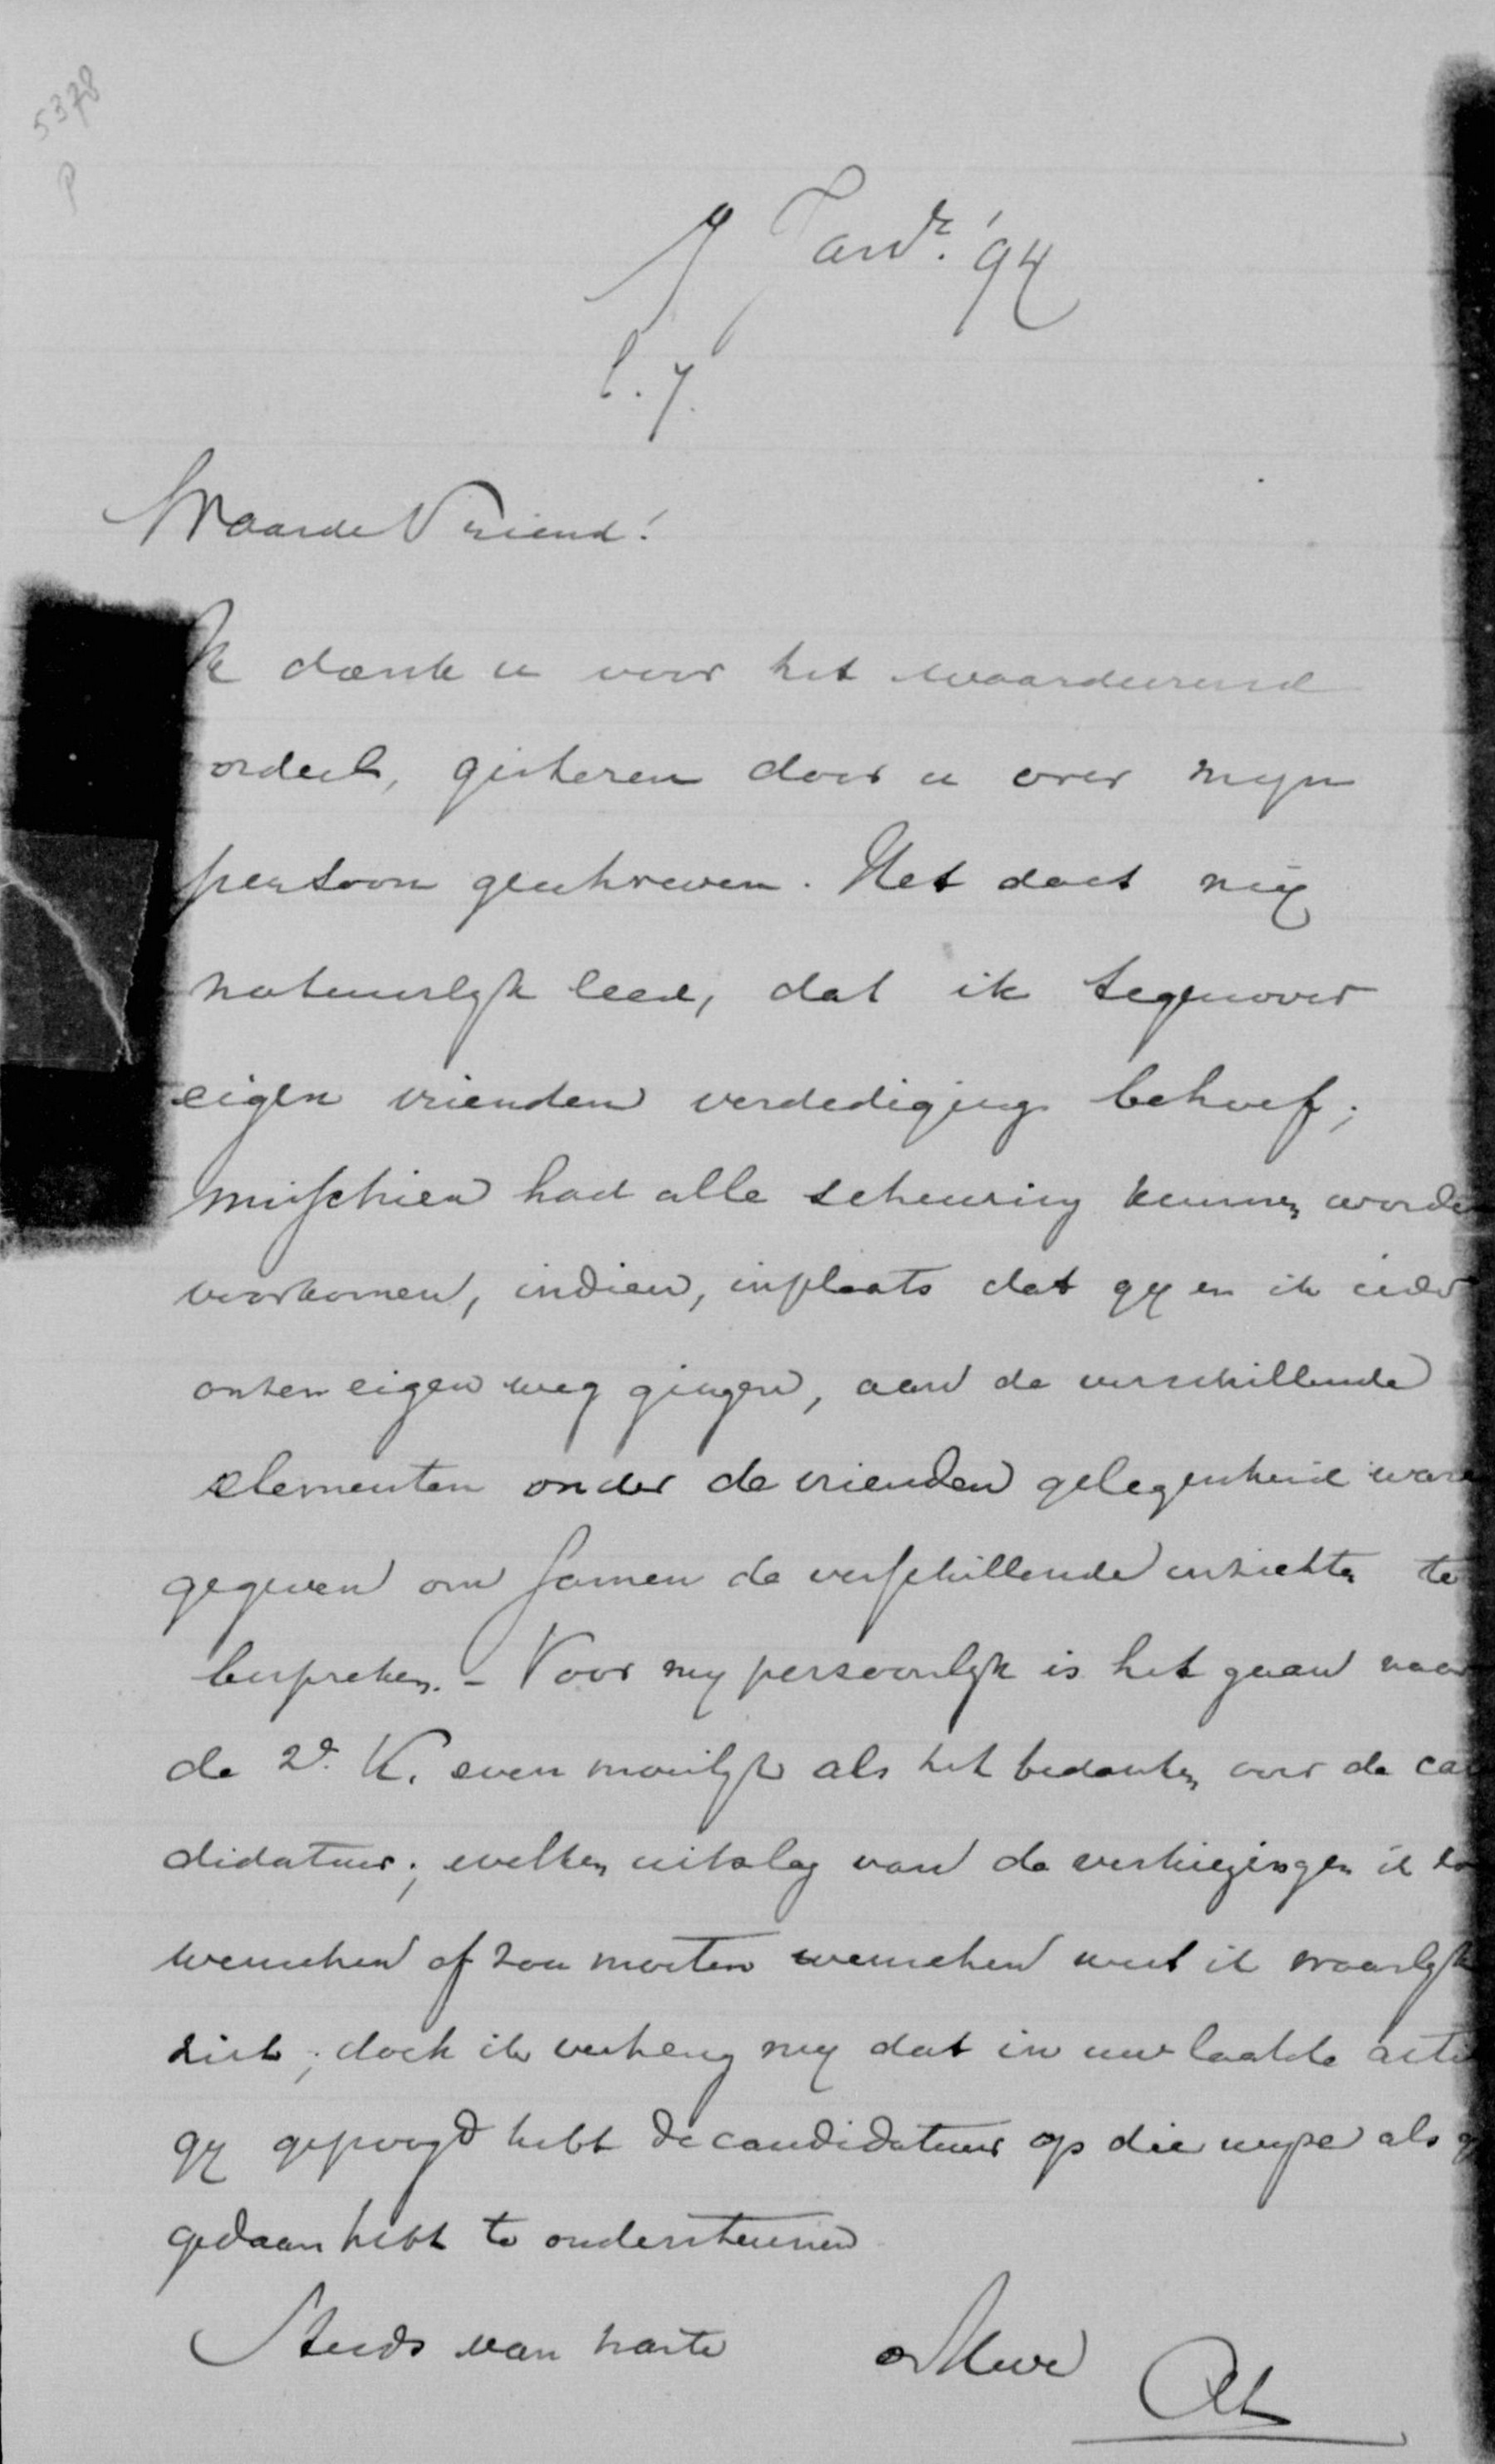 5378
P
9 Janr. '94
Waarde Vriend!
Ik dank u voor het waardeerend
oordeel, gisteren door u over mijn
persoon geschreven. Het doet mij
natuurlijk leed, dat ik tegenover
eigen vrienden verdediging behoef;
misschien had alle scheuring kunnen worden
voorkomen, indien, inplaats dat gij en ik ieder
onzen eigen weg gingen, aan de verschillende
elementen onder de vrienden gelegenheid ware
gegeven om samen de verschillende inzichten te
bespreken. – Voor mij persoonlijk is het gaan naar
de 2e. K. even moeilijk als het bedanken voor de can
didatuur; welken uitslag van de verkiezingen ik
wenschen of zou moeten wenschen weet ik waarlijk
niet; doch ik verheug mij dat in uw laatste
gij gepoogd hebt de candidatuur op die wijze als
gedaan hebt te ondersteunen
Steeds van harte
Uwe